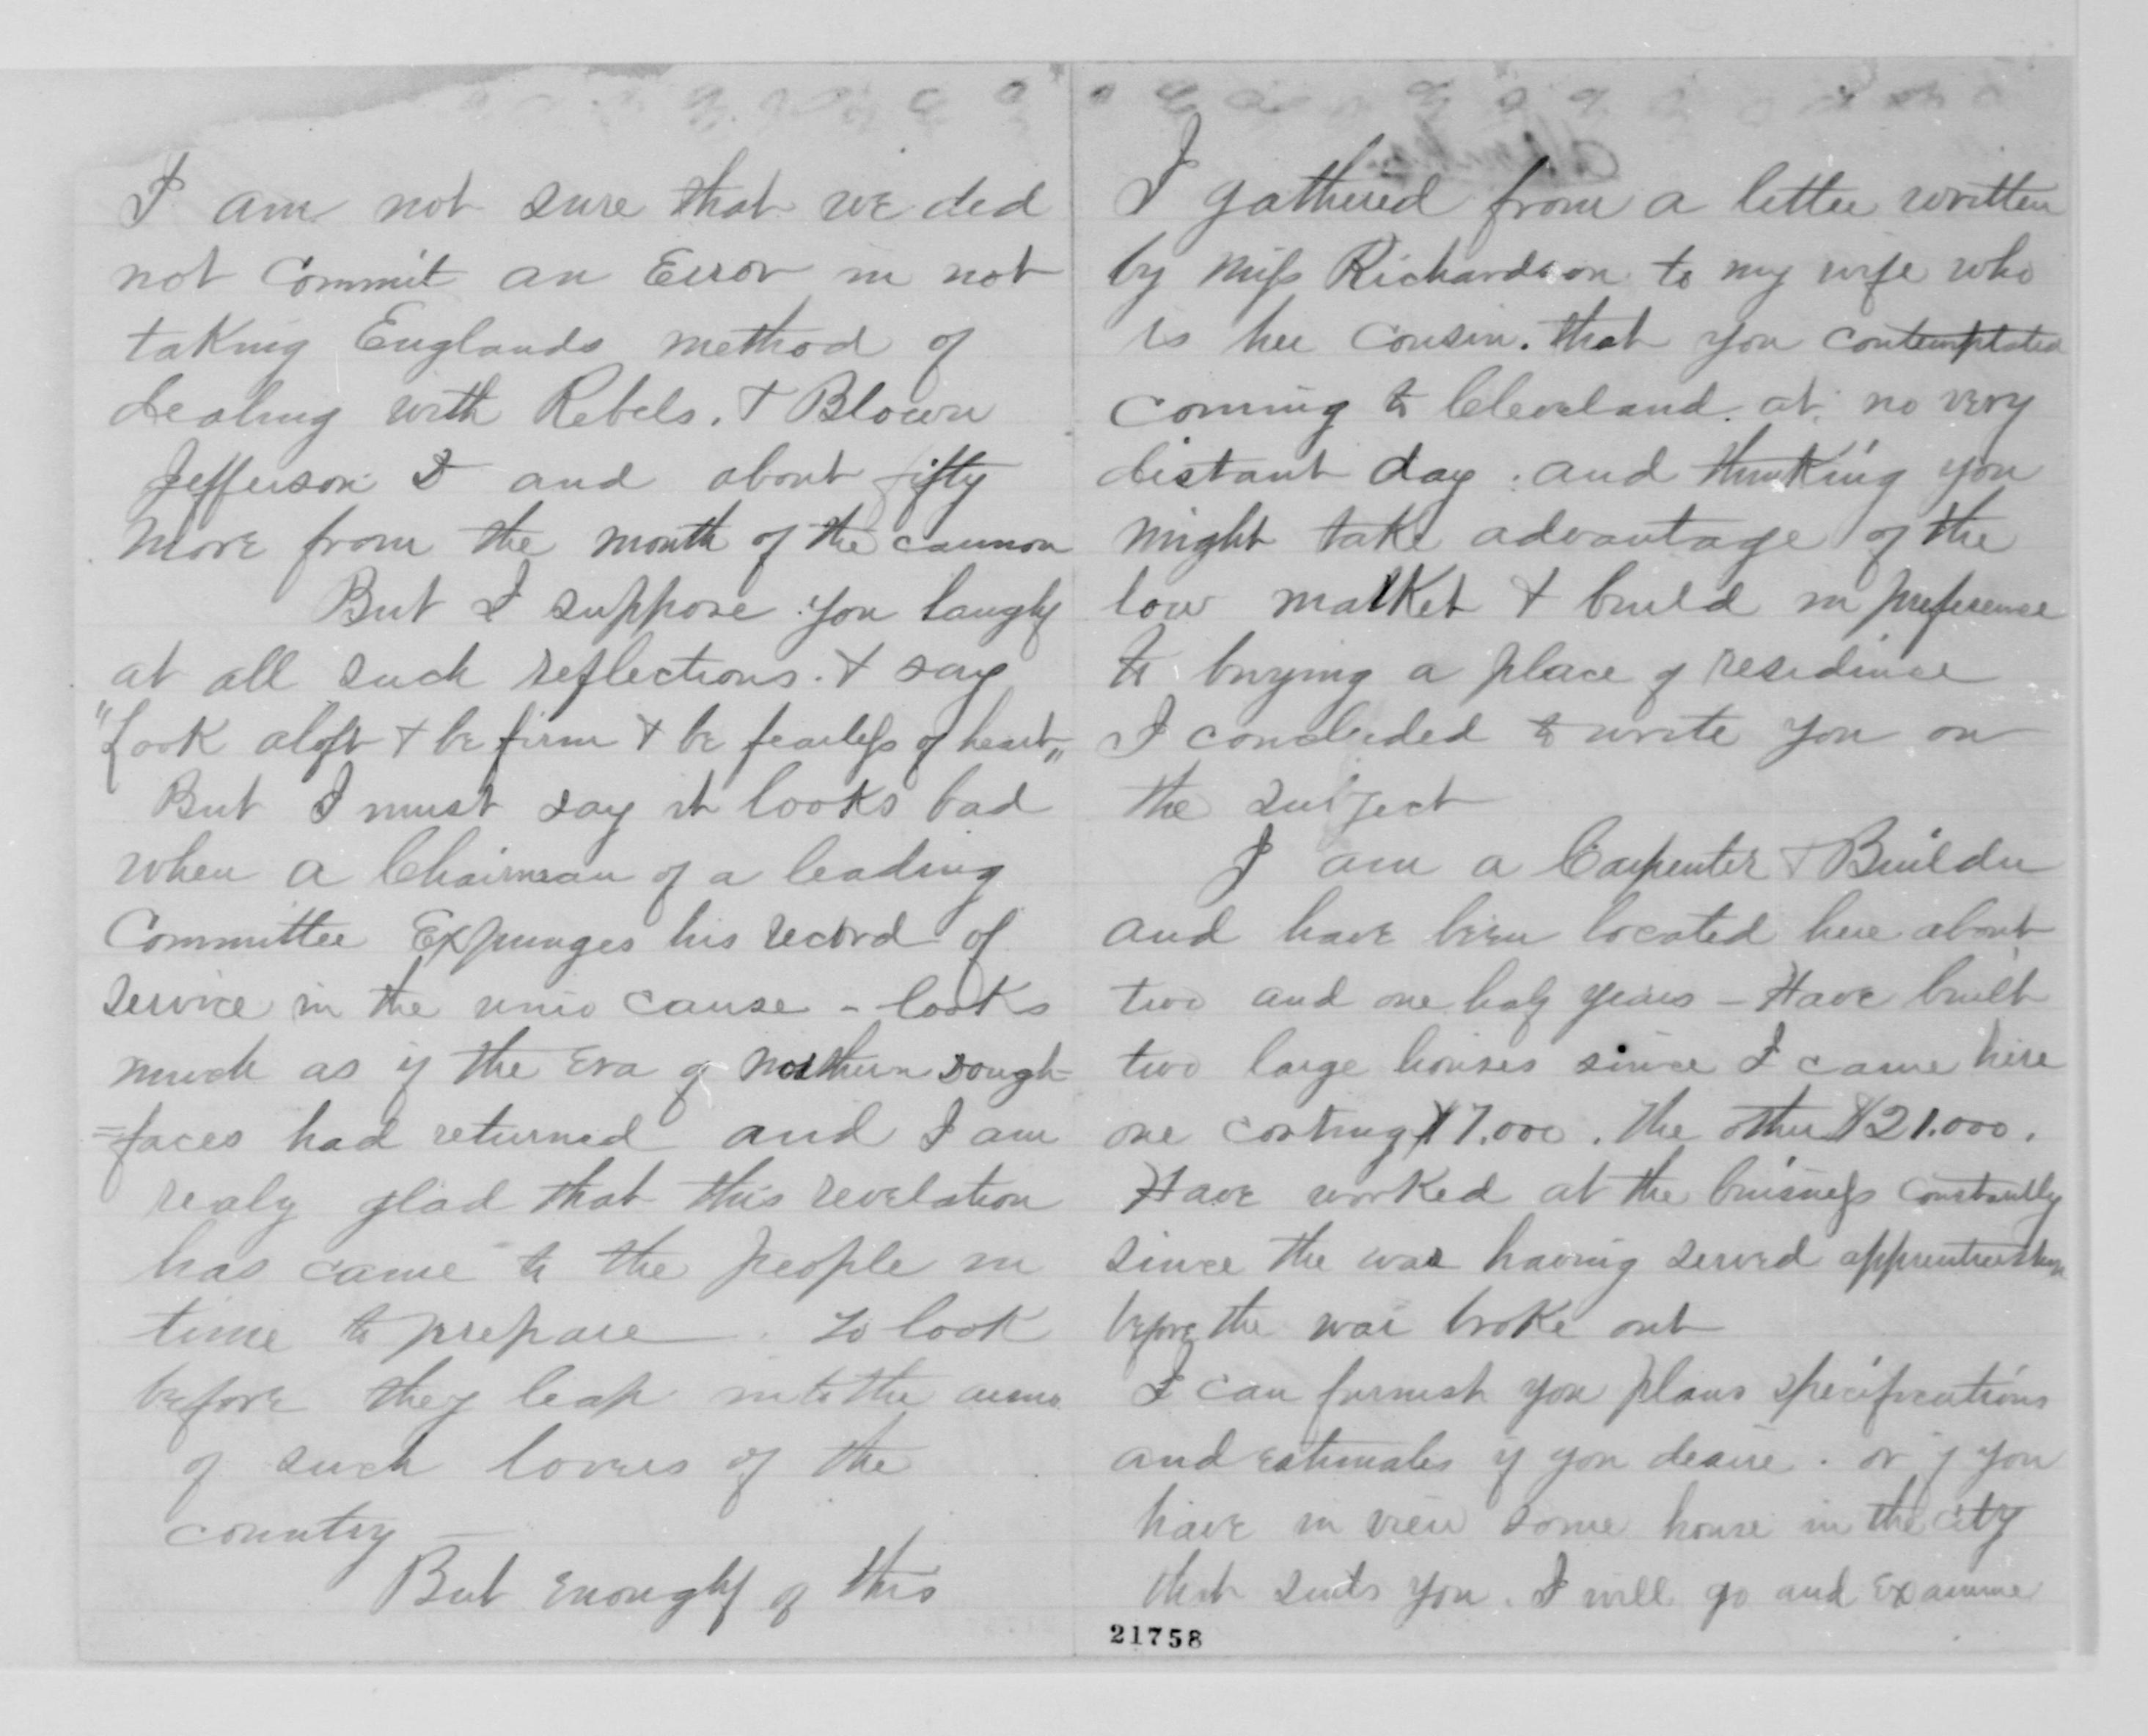 I am not sure that we did
not Commit an Error in not
taking Englands method of
dealing with Rebels. & Blown
Jefferson D and about fifty
more from the mouth of the cannon
But I suppose you laugh
at all such reflections. & say
"Look aloft & be firm & be fearless of heart"
But I must say it looks bad
when a Chairman of a leading
Committee Expunges his record of
service in the unio cause - looks
much as if the Era of Northern Dough-
=faces had returned and I am
realy glad that this revelation
has came to the people in
time to prepare. to look
before they leap into the arms
of such lovers of the
country —
But Enough of this
I gathered from a letter written
by Miss Richardson to my wife who
is her Cousin. that you contemplated
coming to Cleveland. at no very
distant day. and thinking you
might take advantage of the
low market & build in preference
to buying a place of residence
I concluded to write you on
the subject
I am a Carpenter & Builder
and have been located here about
two and one half years - Have built
two large houses since I came here
one costing $17.000. the other $21.000.
Have worked at the buisness constantly
since the war having served apprenticeship
before the war broke out
I can furnish you plans specifications
and estimates if you desire. or if you
have in view some house in the city
that suits you. I will go and Examine
21758